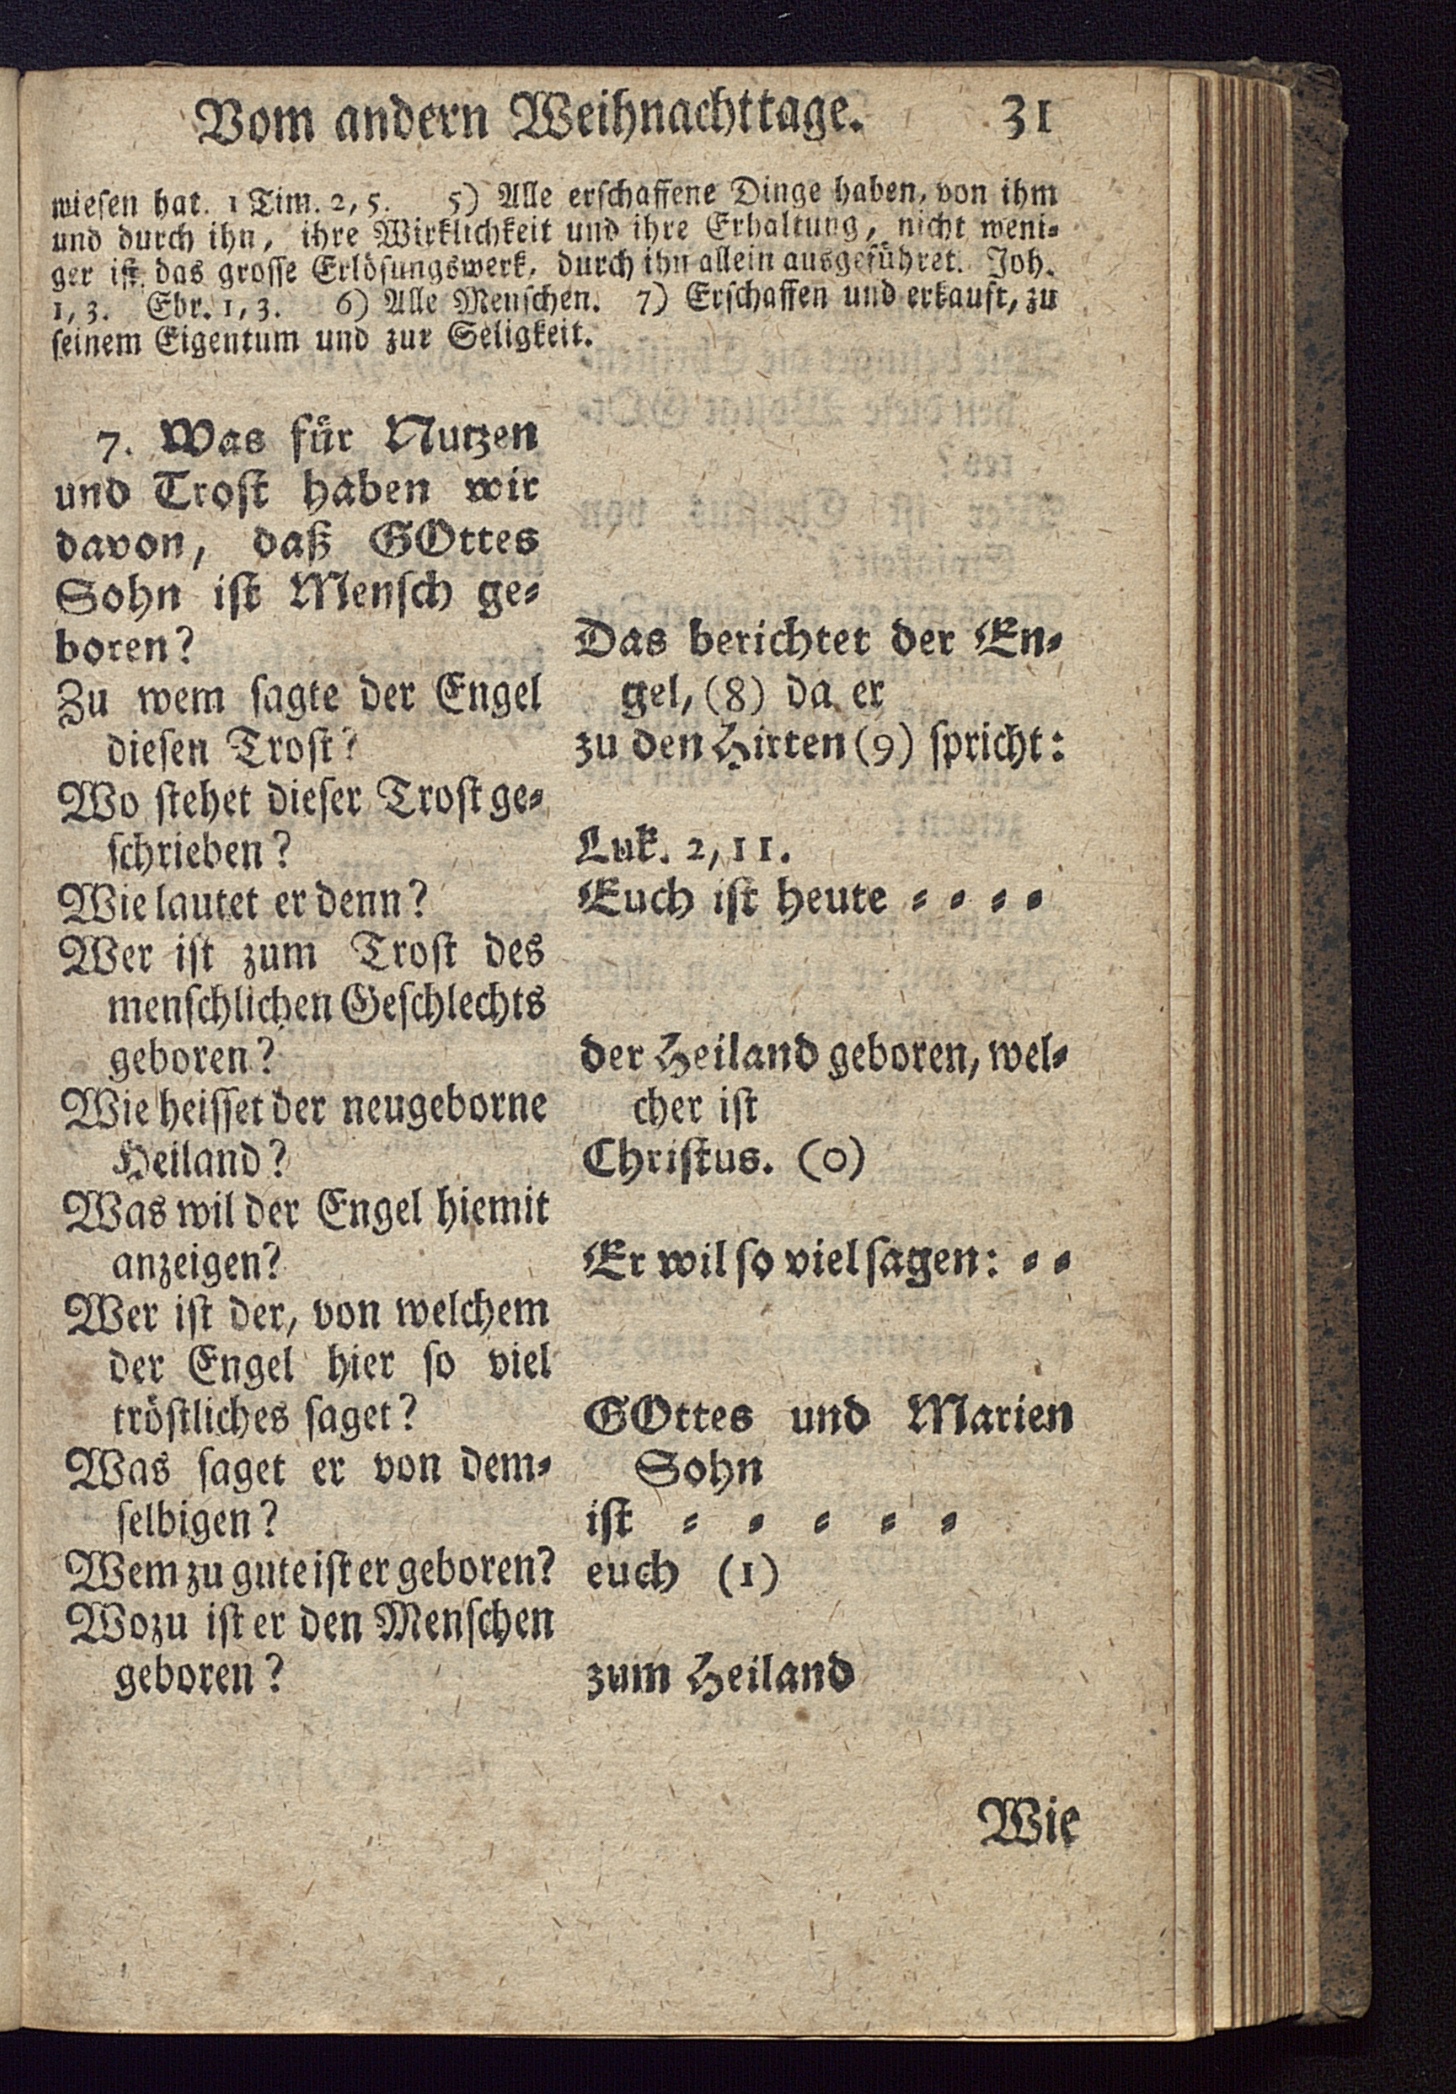 Vom andern Weihnachttage. 31
wiesen hat. 1 Tim. 2, 5. 5) Alle erschaffene Dinge haben, von ihm
und durch ihn, ihre Wirklichkeit und ihre Erhaltung, nicht weni⸗
ger ist das grosse Erlösungswerk, durch ihn allein ausgeführet. Joh.
1, 3. Ebr. 1, 3. 6) Alle Menschen. 7) Erschaffen und erkauft, zu
seinem Eigentum und zur Seligkeit.
7. Was für Nutzen
und Trost haben wir
davon, daß GOttes
Sohn ist Mensch ge⸗
boren?
Zu wem sagte der Engel
diesen Trost?
Wo stehet dieser Trost ge⸗
schrieben?
Wie lautet er denn?
Wer ist zum Trost des
menschlichen Geschlechts
geboren?
Wie heisset der neugeborne
Heiland?
Was wil der Engel hiemit
anzeigen?
Wer ist der, von welchem
der Engel hier so viel
tröstliches saget?
Was saget er von dem⸗
selbigen?
Wem zu gute ist er geboren?
Wozu ist er den Menschen
geboren?
Das berichtet der En⸗
gel, (8) da er
zu den Hirten (9) spricht:
Luk. 2, 11.
Euch ist heute ⸗ ⸗ ⸗ ⸗
der Heiland geboren, wel⸗
cher ist
Christus. (0)
Er wil so viel sagen: ⸗ ⸗
GOttes und Marien
Sohn
ist ⸗ ⸗ ⸗ ⸗ ⸗
euch (1)
zum Heiland
Wie